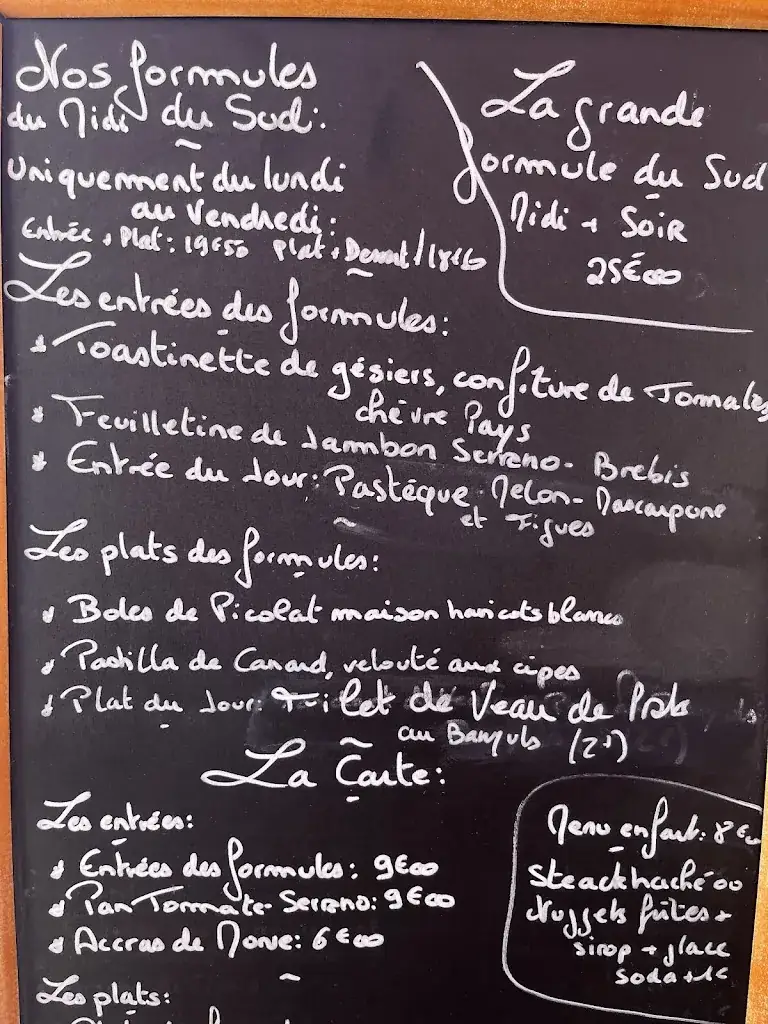 Nos formules
du Midi du Sud:
Uniquement du lundi
au Vendredi:
Entrée + Plat: 19€50 Plat + Dessert
La grande
formule du Sud
Midi + Soir
25€00
Les entrées des formules:
* Toastinette de gésiers, confiture de Tomates
chèvre Pays
* Feuilletine de Jambon Serrano - Brebis
* Entrée du Jour: Pastèque - Melon - Mascarpone
et Figues
Les plats des formules:
* Boles de Picolat maison haricots blancs
* Pastilla de Canard, velouté aux cèpes
* Plat du Jour: Filet de Veau de
au Banyuls
La Carte:
Les entrées:
* Entrées des formules: 9€00
* Pan Tomate Serrano: 9€00
* Accras de Morue: 6€00
Menu enfant: 8€00
Steack haché ou
Nuggets frites +
sirop + glace
soda + 1€
Les plats: